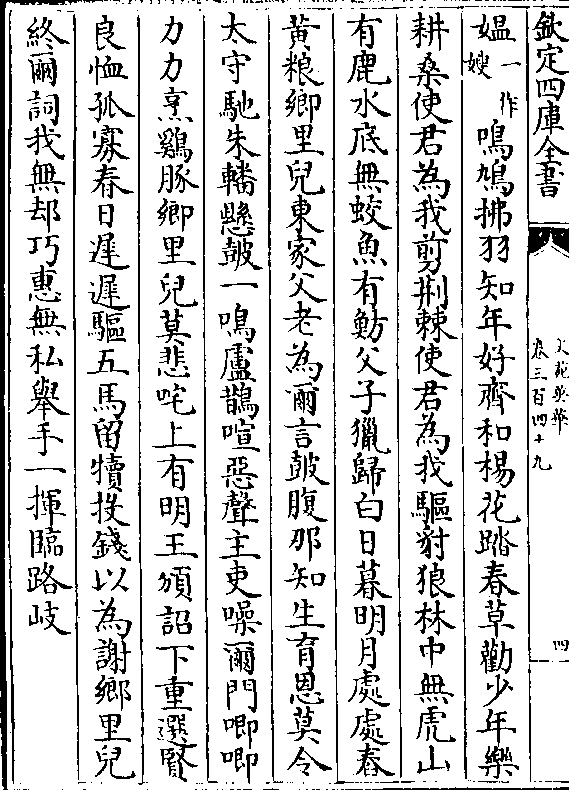 欽定四庫全書
文苑英華
卷三百四十九
四
媪一作嫂鳴鳩拂羽知年好齊和楊花踏春草勸少年樂
耕桑使君為我剪荆棘使君為我驅豺狼林中無虎山
有鹿水底無蛟魚有魴父子獵歸白日暮明月處處舂
黄粮鄉里兒東家父老為爾言鼓腹那知生育恩莫令
太守馳朱轓懸鼓一鳴盧鵲喧惡聲主吏噪爾門唧唧
力力烹鷄豚鄉里兒莫悲咤上有明王頒詔下重選賢
良恤孤寡春日遲遲驅五馬留犢投錢以為謝鄉里兒
終爾詞我無却巧惠無私舉手一揮臨路岐